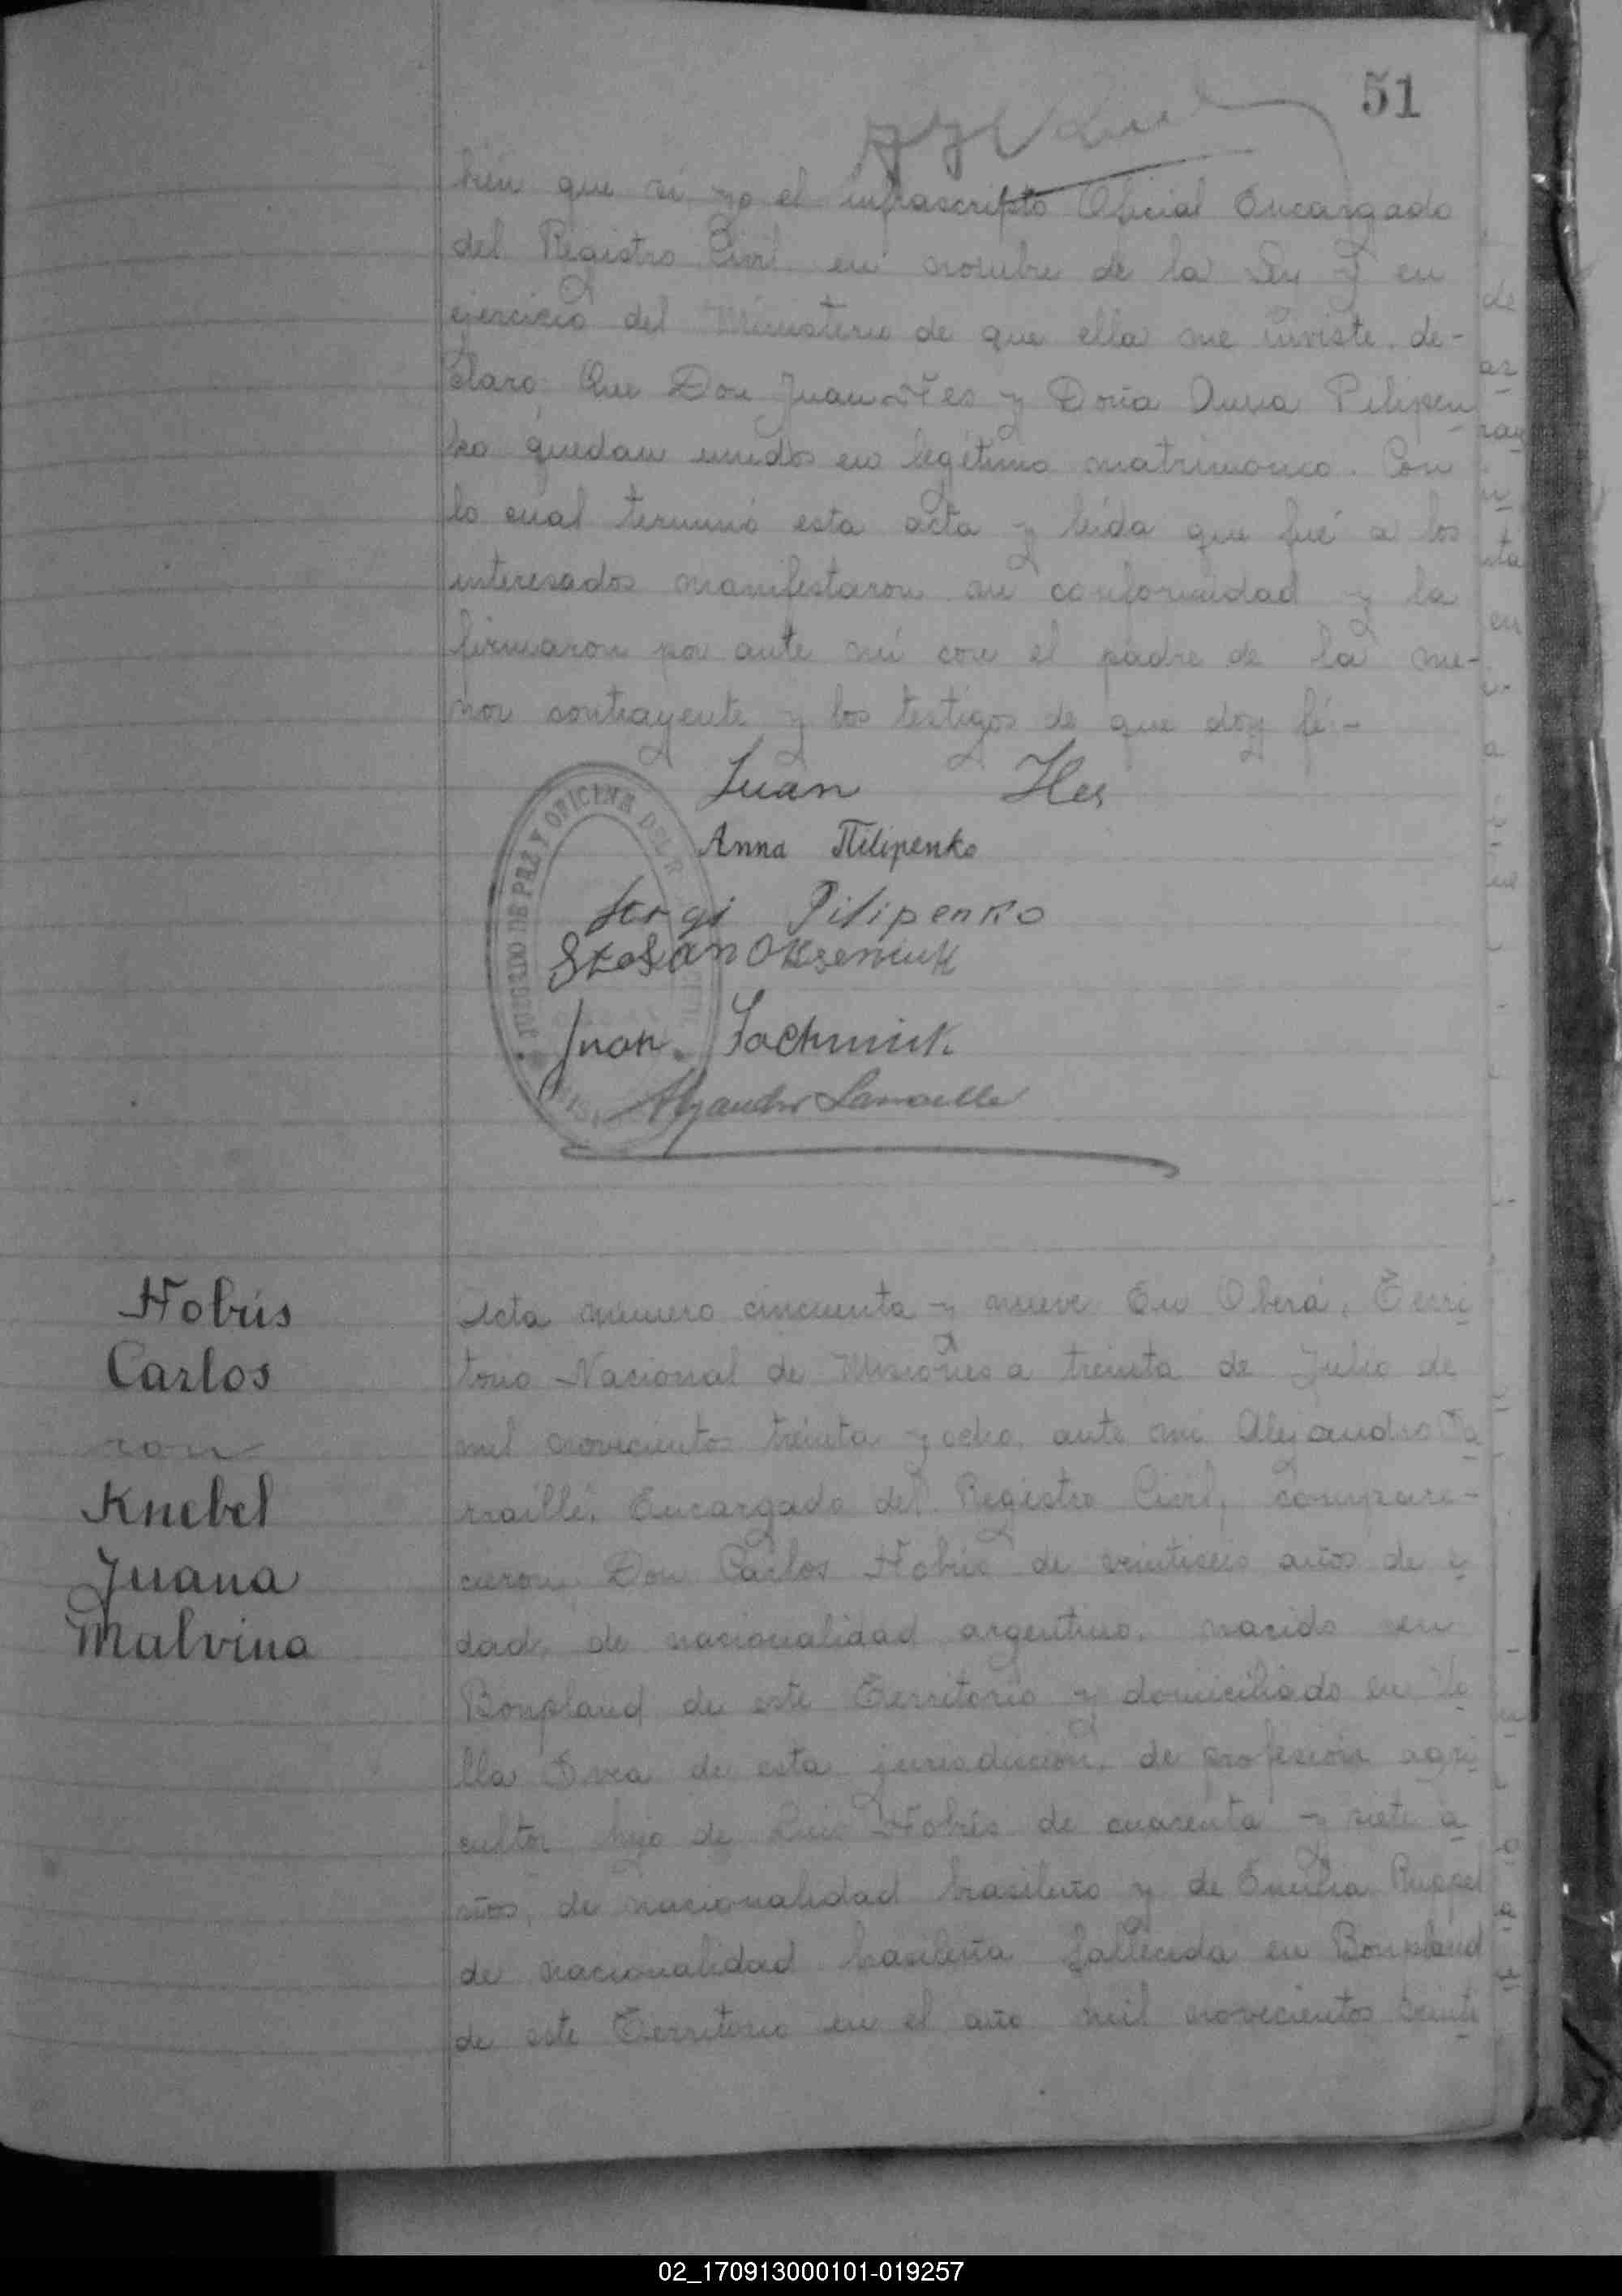 51
bién que sí, yo el infrascripto Oficial Encargado
del Registro Civil en nombre de la Ley y en
ejercicio del Ministerio de que ella me inviste, de-
claro: Que Don Juan Iles y Doña Anna Pilipen
ko quedan unidos en legítimo matrimonio. Con
lo cual terminó esta acta y leída que fué a los
interesados manifestaron su conformidad y la
firmaron por ante mí con el padre de la me-
nor contrayente y los testigos de que doy fé.-
Juan Iles
Anna Pilipenko
Sergi Pilipenko
Juan
JUZGADO DE PAZ Y OFICINA DEL R CIVIL
Hobús
Carlos
con
Knebel
Juana
Malvina
Acta número cincuenta y nueve. En Oberá, Terri
torio Nacional de Misiones a treinta de Julio de
mil novecientos treinta y ocho, ante mí Alejandro La
rraillé, Encargado del Registro Civil, compare-
cieron, Don Carlos Hobús de veintiseis años de e
dad, de nacionalidad argentino, nacido en
Bonpland de este Territorio y domiciliado en Vi
lla Svea de esta jurisdicción, de profesión agri
cultor hijo de Luis Hobús de cuarenta y siete a
ños, de nacionalidad brasileño y de Emilia Ruppel
de nacionalidad brasileña fallecida en Bonpland
de este Territorio en el año mil novecientos
02_170913000101-019257